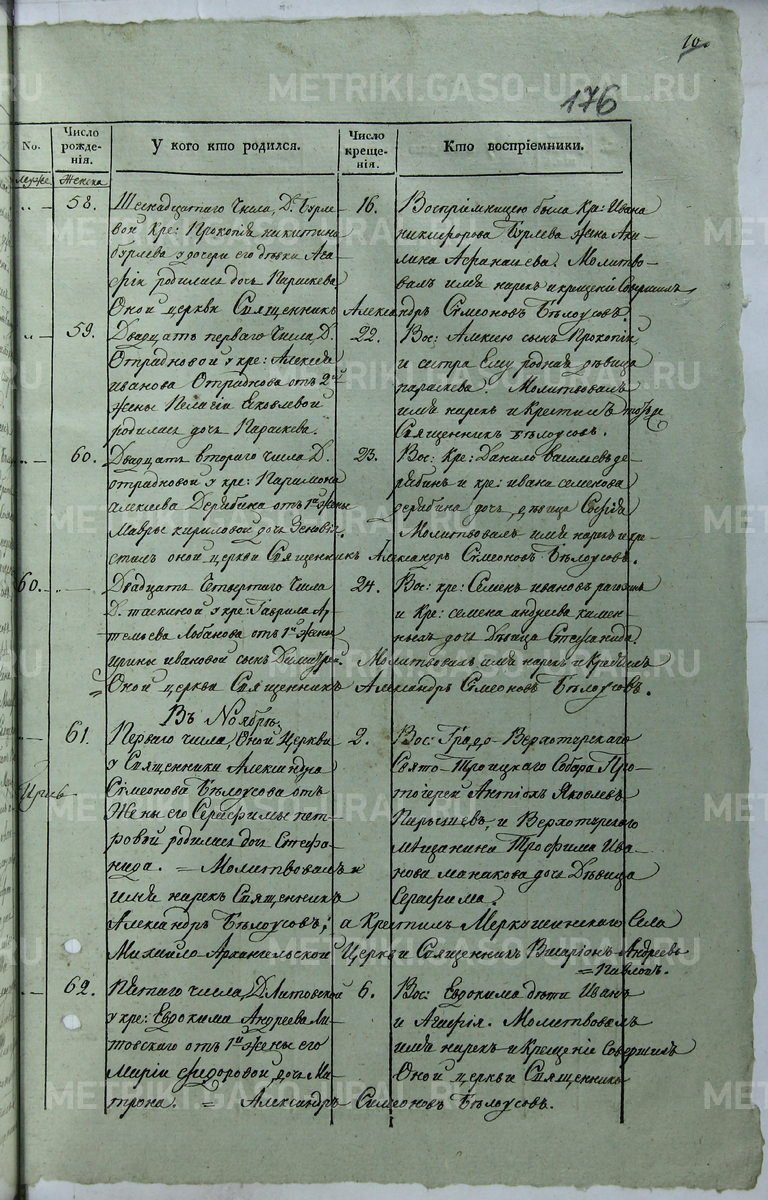 10.
176
No.
Число рожде-нія.
У кого кто родился.
Число креще-нія.
Кто воспріемники.
Мужс. Женска
58.
Шеснадцатаго числа, Д. Бурле-
вой кре: Прокопія Никитина
Бурлева у дочери его девки Ага-
фіи родилась дочь Параскева
Оной церкви Священникъ Александръ Симеоновъ Бѣлоусовъ.
16.
Воспріемницею была кре: Ивана
Никифорова Бурлева жена Аки-
лина Афанасьева. Молитво-
валъ имя нарекъ и крещеніе совершилъ
59.
Двадцать перваго числа, Д.
Отрадновой у кре: Алексѣя
Иванова Отраднова отъ 2й
жены Пелагіи Яковлевой
родилась дочь Параскева.
22.
Вос: Алексѣю сынъ Прокопій
и сестра ему родная дѣвица
Параскева. Молитвовалъ
имя нарекъ и крестилъ тотъ
Священникъ Бѣлоусовъ.
60.
Двадцать втораго числа Д.
Отрадновой у кре: Парамона
Алексеева Дерябина отъ 1й жены
Мавры Кириловой дочь Зеновія
стилъ оной церкви Священникъ Александръ Симеоновъ Бѣлоусовъ.
23.
Вос: кре: Данило Васильевъ Де-
рябинъ и кре: Ивана Семенова
Дерябина дочь дѣвица Софія
Молитвовалъ имя нарекъ и кре-
60.
Двадцать четвертаго числа
Д. Таскиной у кре: Гаврила Ар-
темьева Лобанова отъ 1й жены
Ирины Ивановой сынъ Димитрій. Молитвовалъ имя нарекъ и крестилъ
Оной церкви Священникъ Александръ Симеоновъ Бѣлоусовъ.
24.
Вос: кре: Семенъ Ивановъ
и кре: Семена Андреева
дочь дѣвица Стефанида.
Въ Ноябрѣ.
61.
Перваго числа, Оной Церкви
у Священника Александра
Симеонова Бѣлоусова отъ
жены его Серафимы Пет-
ровой родилась дочь Стефа-
нида. = Молитвовалъ и
имя нарекъ Священникъ
Александръ Бѣлоусовъ; а крестилъ Меркушинскаго села
Михайло-Архангельской Церкви Священникъ Виссаріонъ Андреевъ
2.
Вос: Градо-Верхотурскаго
Свято-Троицкаго Собора Про-
тоіерей Антіохъ Яковлевъ
и Верхотурскаго
мѣщанина Трофима Ива-
нова Манакова дочь дѣвица
Серафима.
62.
Пятаго числа, Д. Литовской
у кре: Евдокима Андреева Ли-
товскаго отъ 1й жены его
Маріи Фидоровой дочь Ма-
трона. = Александръ Симеоновъ Бѣлоусовъ.
6.
Вос: Евдокима дѣти Иванъ
и Агафія. Молитвовалъ
имя нарекъ и крещеніе совершилъ
Оной церкви Священникъ
METRIKI.GASO-URAL.RU